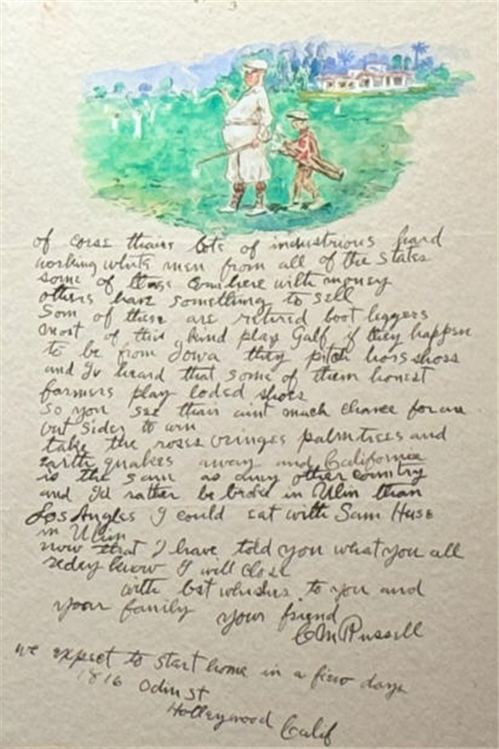 of corse thairs lots of industrious hard
working white men from all of the States
some of these com here with money
others have something to sell
Som of these are retired boot leggers
most of this kind play Galf if they happen
to be from Iowa they pitch hors shoes
and Iv heard that some of them honest
farmers play loded shoes
So you see thair aint much chance for an
out sider to win
take the roses oringes palm trees and
earth quakes away and California
is the sam as any other country
and I'd rather be broke in Ulm than
Los Angles I could eat with Sam Huse
in Ulm
now that I have told you what you all
redey know I will close
with bst whishes to you and
your family your friend
CM Russell
we expect to start home in a few days
1816 Odin st
Holleywood Calif